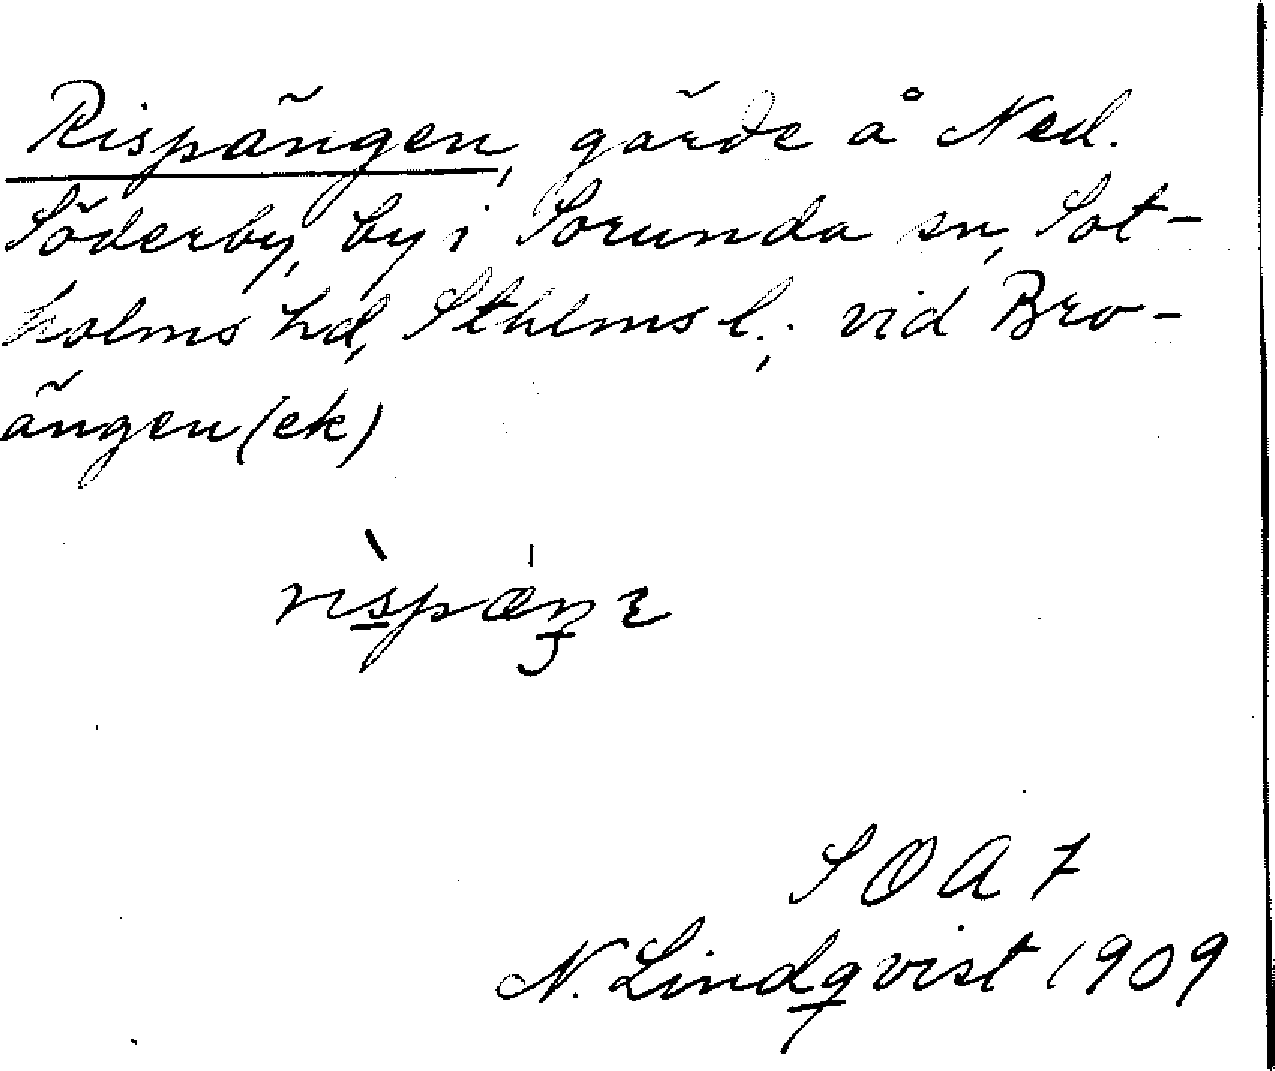 Rispängen, gärde å Ned.
Söderby, by i Sorunda sn, Sot-
holms hd, Sthlms l.; vid Bro-
ängen (ek)
SOA 7
N. Lindqvist 1909